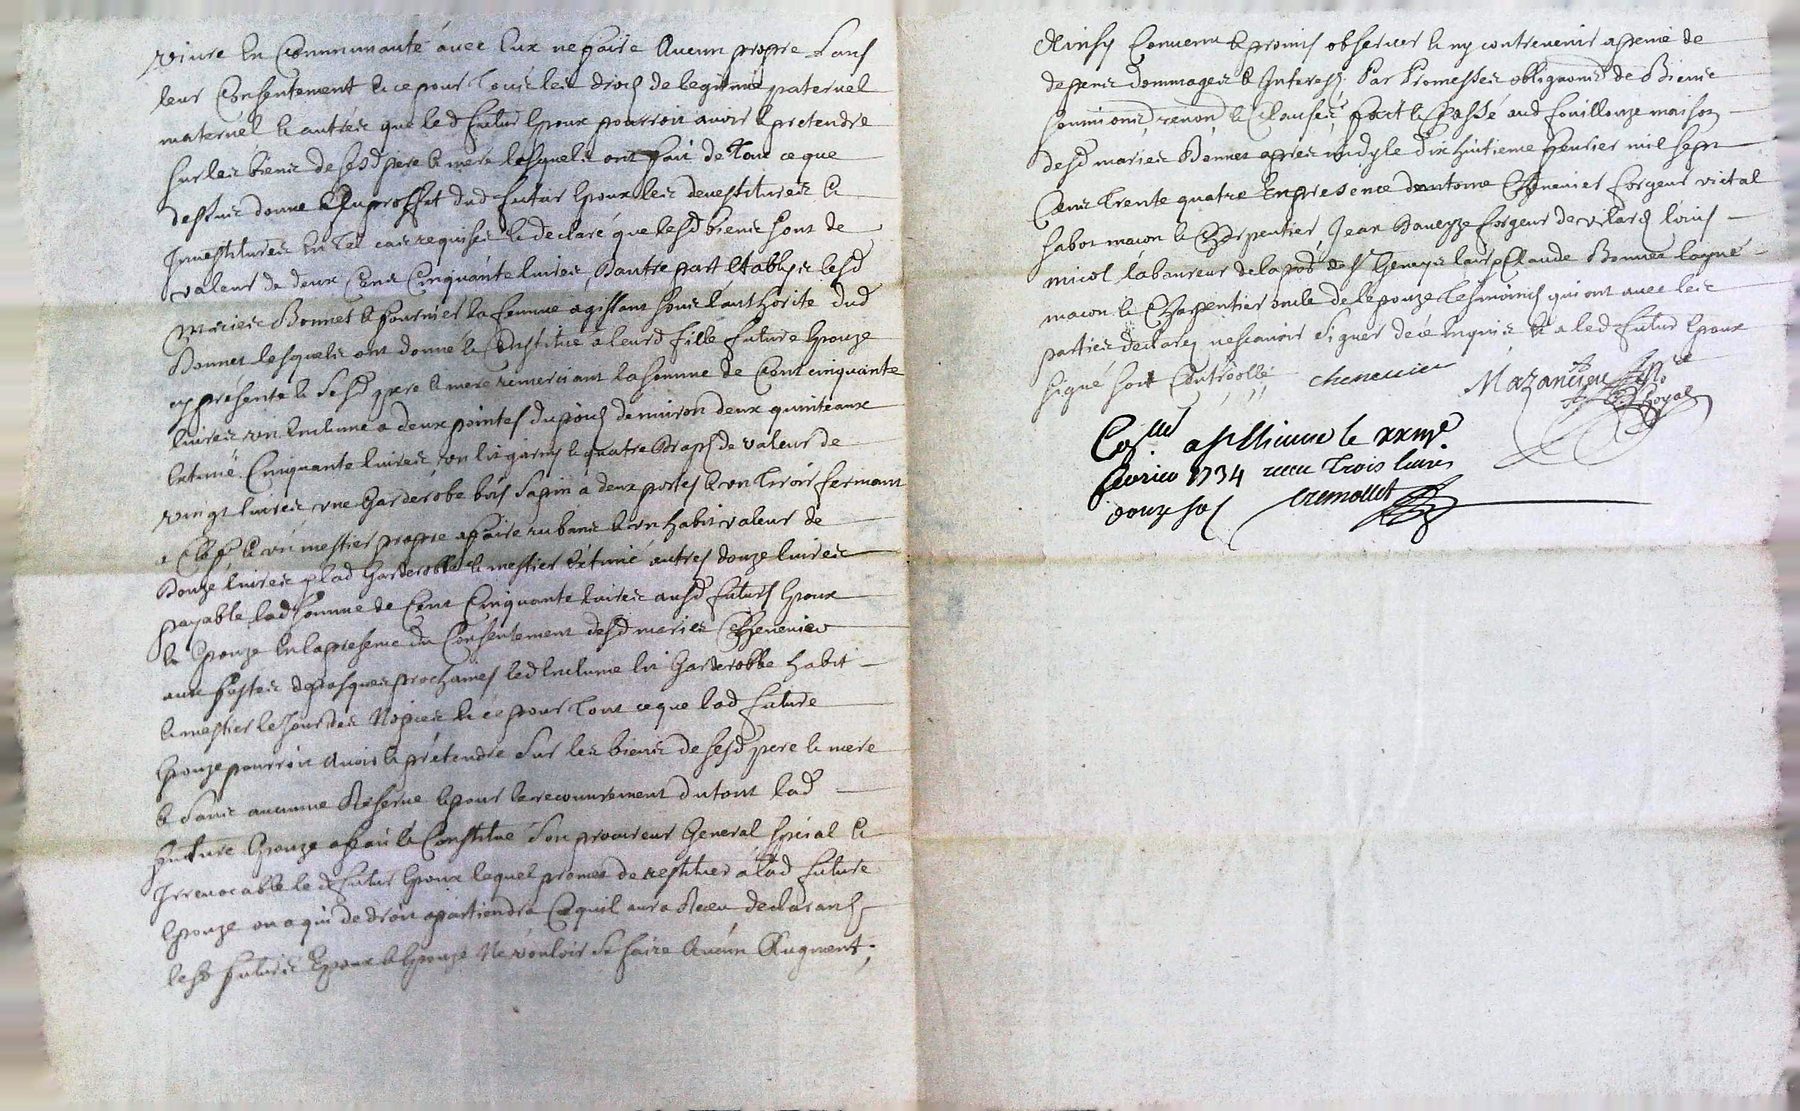 vivre en Communauté avec eux ne faire Aucun propre Sans
leur Consentement & ce pour Tous les droits de legitime paternel
maternel & autres que led futur Epoux pourroit avoir & pretendre
sur les biens de sesd pere & mere lesquels ont fait de Tout ce que
dessus donne Au proffit dud futur Epoux les devestitures &
Investitures en tel cas requises & declaré que lesd biens sont de
valeur de deux Cens Cinquante livres, Dautre part Etablys lesd
Maries Bonnet & fournier la femme agissant sous lauthorité dud
Bonnet lesquels ont donné & Constitué a leurd fille future Epouze
cy présente & Sesd pere & mere remerciant la somme de Cent cinquante
livres un Enclume a deux pointes du poids denviron deux quinteaux
Extimé Cinquante livres, un lit garny & quatre Draps de valeur de
vingt livres une Garderobe bois Sapin a deux portes & un Tiroir fermant
a Clef & un mestier propre a faire rubans & un habit valeur de
Douze livres lad Garderobbe & mestier Extimé autres douze livres
payable lad somme de Cent Cinquante livres ausd futurs Epoux
& Epouze en la presence du Consentement desd maries Chenevier
aux festes de pasques prochaines led Enclume lit Garderobbe habit
& mestier le Jour des Nopces & ce pour Tout ce que lad future
Epouze pourroit Avoir & prétendre Sur les biens de sesd pere & mere
& Sans aucune Reserve & pour le recouvrement du tout lad
future Epouze a fait & Constitué Son procureur General spécial &
Irrevocable led futur Epoux lequel promet de restituer a lad future
Epouze ou a qui de droit apartiendra Ce quil aura Receu declarant
lesd futurs Epoux & Epouze Ne vouloir se faire Aucun Augment;
Ainsy Convenu & promis observer & ny contrevenir a peine de
depens dommages & Interests Par Promesses obligaons de Biens
soumions renon & Clauses fait & Passé aud fouillouze maison
desd maries Bonnet apres midy le Dix huitieme fevrier mil sept
Cens trente quatre En presence dantoine Chenevier forgeur vietal
Sabot macon & Charpentier, Jean forgeur de vilard Louis
micol laboureur de la de St Genez Claude Bonnet
macon & Charpentier oncle de lepouze Tesmoins qui ont avec les
parties declaré nescavoir Signer de ce Enquis & a led futur Epoux
signé soit Controollé chenevier Mazancieu Nore Royal
Collé a St Etienne le xxme
fevrier 1734 receu Trois livres
douze sols Cremollet